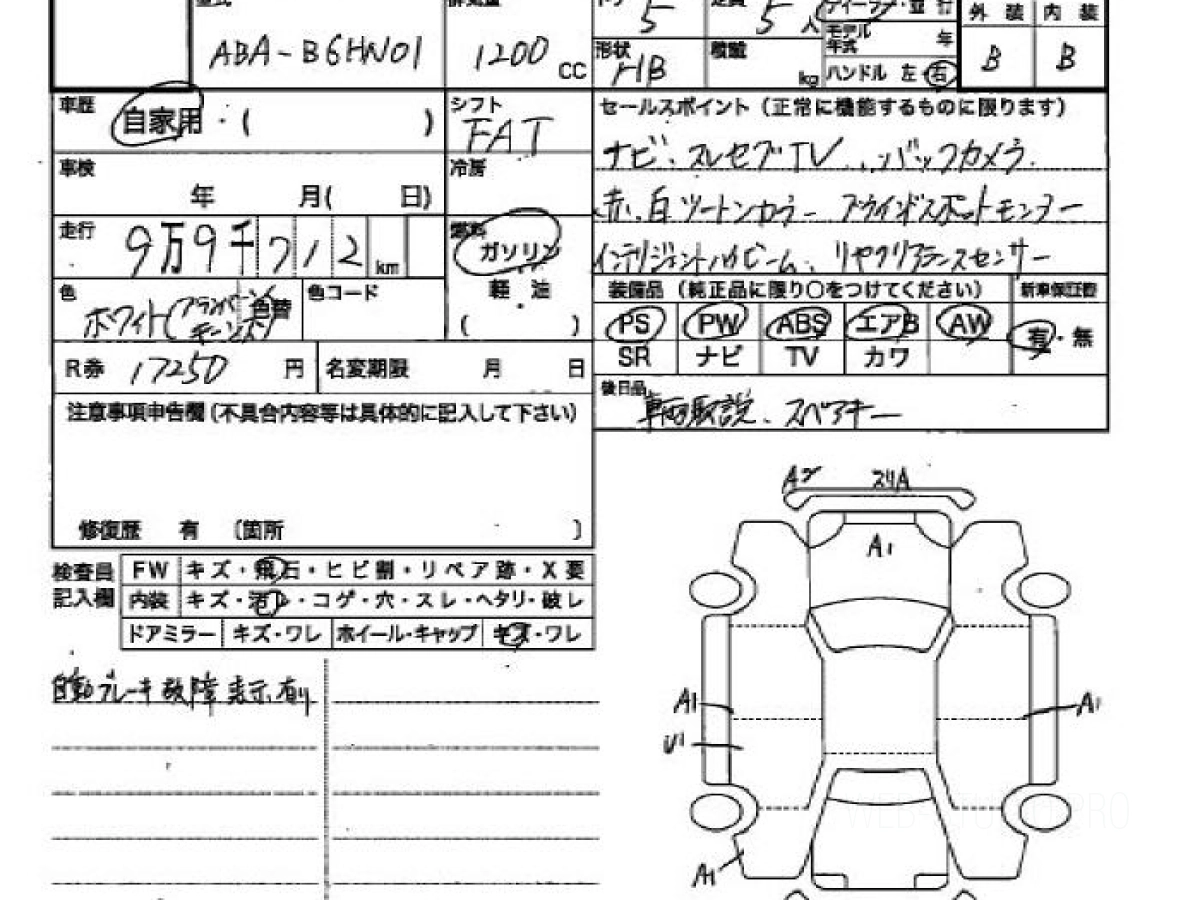 ABA-B6HN01 1200 CC
5 5人
形状 HB 積載 kg
モデル年式 年
ハンドル 左・右
外装 内装
B B
車歴 自家用・( )
シフト FAT
セールスポイント（正常に機能するものに限ります）
ナビ、プレセブTV、バックカメラ
車検 年 月( 日)
冷房
赤、白ツートンカラー ブラインドスポットモニター
走行 9万9千712km
燃料 ガソリン
軽油
( )
インテリジェントハイビーム、リヤクリアランスセンサー
色 ホワイト( 色替
色コード
装備品（純正品に限り○をつけてください） 新車保証書
PS PW ABS エアB AW 有・無
SR ナビ TV カワ
R券 17250円 名変期限 月 日
後日品
車両取説、スペアキー
注意事項申告欄(不具合内容等は具体的に記入して下さい)
修復歴 有 〔箇所 〕
検査員記入欄
FW キズ・飛石・ヒビ割・リペア跡・X要
内装 キズ・汚レ・コゲ・穴・スレ・ヘタリ・破レ
ドアミラー キズ・ワレ ホイール・キャップ キズ・ワレ
自動ブレーキ故障表示有り
A2 スリA
A1
A1 A1
U1
A1